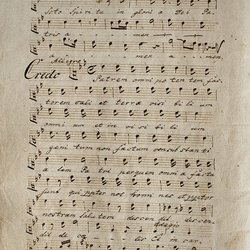 cto Spiritu in gloria Dei Pa
tris a men
a men a men
Allegro
Credo Patrem omni po ten tem fac
torem coeli et terrae visi bi li um
omni um et in vi si bi li um
geni tum non factum consubstan ti
a lem Pa tri per quem omni a facta
sunt qui propter nos homi nes et propter
nostram salu tem descen dit descen
Adagio
dit de